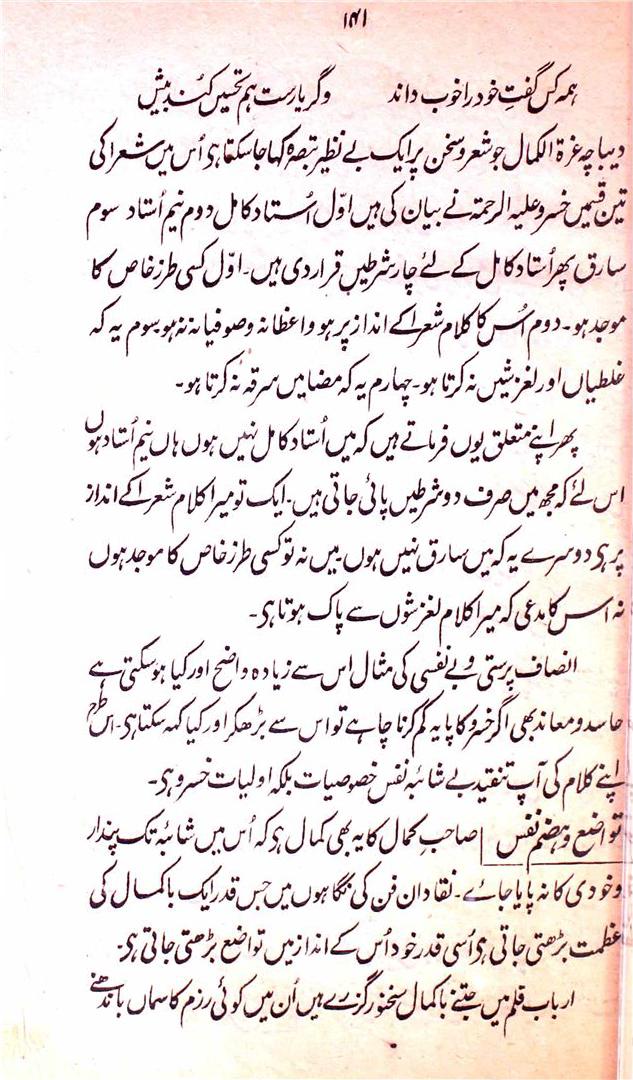 ۱۴۱
ہمہ کس گفتِ خود را خوب داند وگر یارست ہم تحسیں کند بیش
دیباچہ غرۃ الکمال جو شعر و سخن پر ایک بے نظیر تبصرہ کہا جا سکتا ہی اُس میں شعرا کی
تین قسمیں خسرو علیہ الرحمۃ نے بیان کی ہیں اوّل اُستاد کامل دوم نیم اُستاد سوم
سارق پھر اُستاد کامل کے لئے چار شرطیں قرار دی ہیں۔ اوّل کسی طرز خاص کا
موجد ہو۔ دوم اُس کا کلام شعرا کے انداز پر ہو واعظانہ و صوفیانہ نہ ہو سوم یہ کہ
غلطیاں اور لغزشیں نہ کرتا ہو۔ چہارم یہ کہ مضامیں سرقہ نہ کرتا ہو۔
پھر اپنے متعلق یوں فرماتے ہیں کہ میں اُستاد کامل نہیں ہوں ہاں نیم اُستاد ہوں
اس لئے کہ مجھ میں صرف دو شرطیں پائی جاتی ہیں۔ ایک تو میرا کلام شعرا کے انداز
پر ہی دوسرے یہ کہ میں سارق نہیں ہوں میں نہ تو کسی طرز خاص کا موجد ہوں
نہ اس کا مدعی کہ میرا کلام لغزشوں سے پاک ہوتا ہی۔
انصاف پرستی و بے نفسی کی مثال اس سے زیادہ واضح اور کیا ہو سکتی ہے
حاسد و معاند بھی اگر خسرو کا پایہ کم کرنا چاہے تو اس سے بڑھکر اور کیا کہہ سکتا ہی۔ اس طرح
اپنے کلام کی آپ تنقید بے شائبہ نفس خصوصیات بلکہ اولیات خسرو ہی۔
تواضع و ہضم نفس صاحبِ کمال کا یہ بھی کمال ہی کہ اُس میں شائبہ تک پندار
وخودی کا نہ پایا جائے۔ نقادان فن کی نگاہوں میں جس قدر ایک باکمال کی
عظمت بڑھتی جاتی ہی اُسی قدر خود اُس کے انداز میں تواضع بڑھتی جاتی ہی۔
ارباب قلم میں جتنے باکمال سخنور گزرے ہیں اُن میں کوئی رزم کا سماں باندھنے